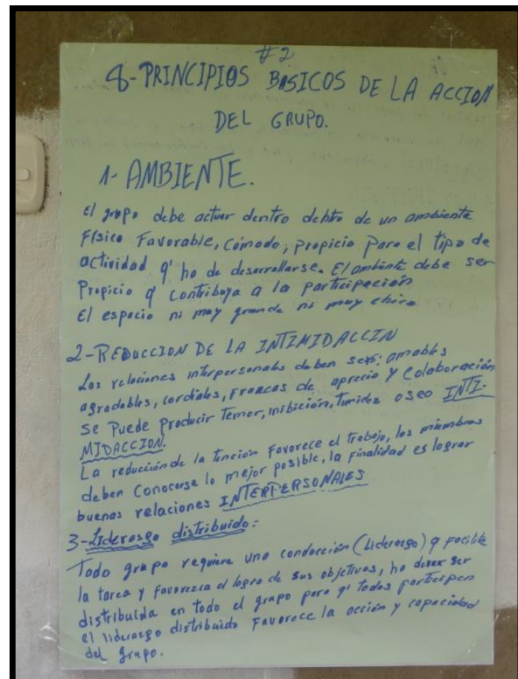 #2
8-PRINCIPIOS BASICOS DE LA ACCION
DEL GRUPO.
1- AMBIENTE.
el grupo debe actuar dentro de un ambiente
Físico Favorable, Cómodo, propicio para el tipo de
actividad q' ha de desarrollarse. El ambiente debe ser
Propicio q' contribuya a la participación
El espacio ni muy grande ni muy chico
2-REDUCCION DE LA INTIMIDACCIN
Las relaciones interpersonales deben ser: amables
agradables, cordiales, Francas de aprecio y Colaboración
se Puede Producir Temor, inibición, Timidez o sea INTI-
MIDACCION.
La reducción de la Tención Favorece el Trabajo, los miembros
deben Conocerse lo mejor posible, la finalidad es lograr
buenas relaciones INTERPERSONALES
3-Liderasgo distribuido:
Todo grupo requiere una conducción (Liderasgo) q posible
la tarea y favoresca el logro de sus objetivos, ha de ser
distribuida en todo el grupo para q' todos participen
el liderasgo distribuido Favorece la acción y capacidad
del grupo.